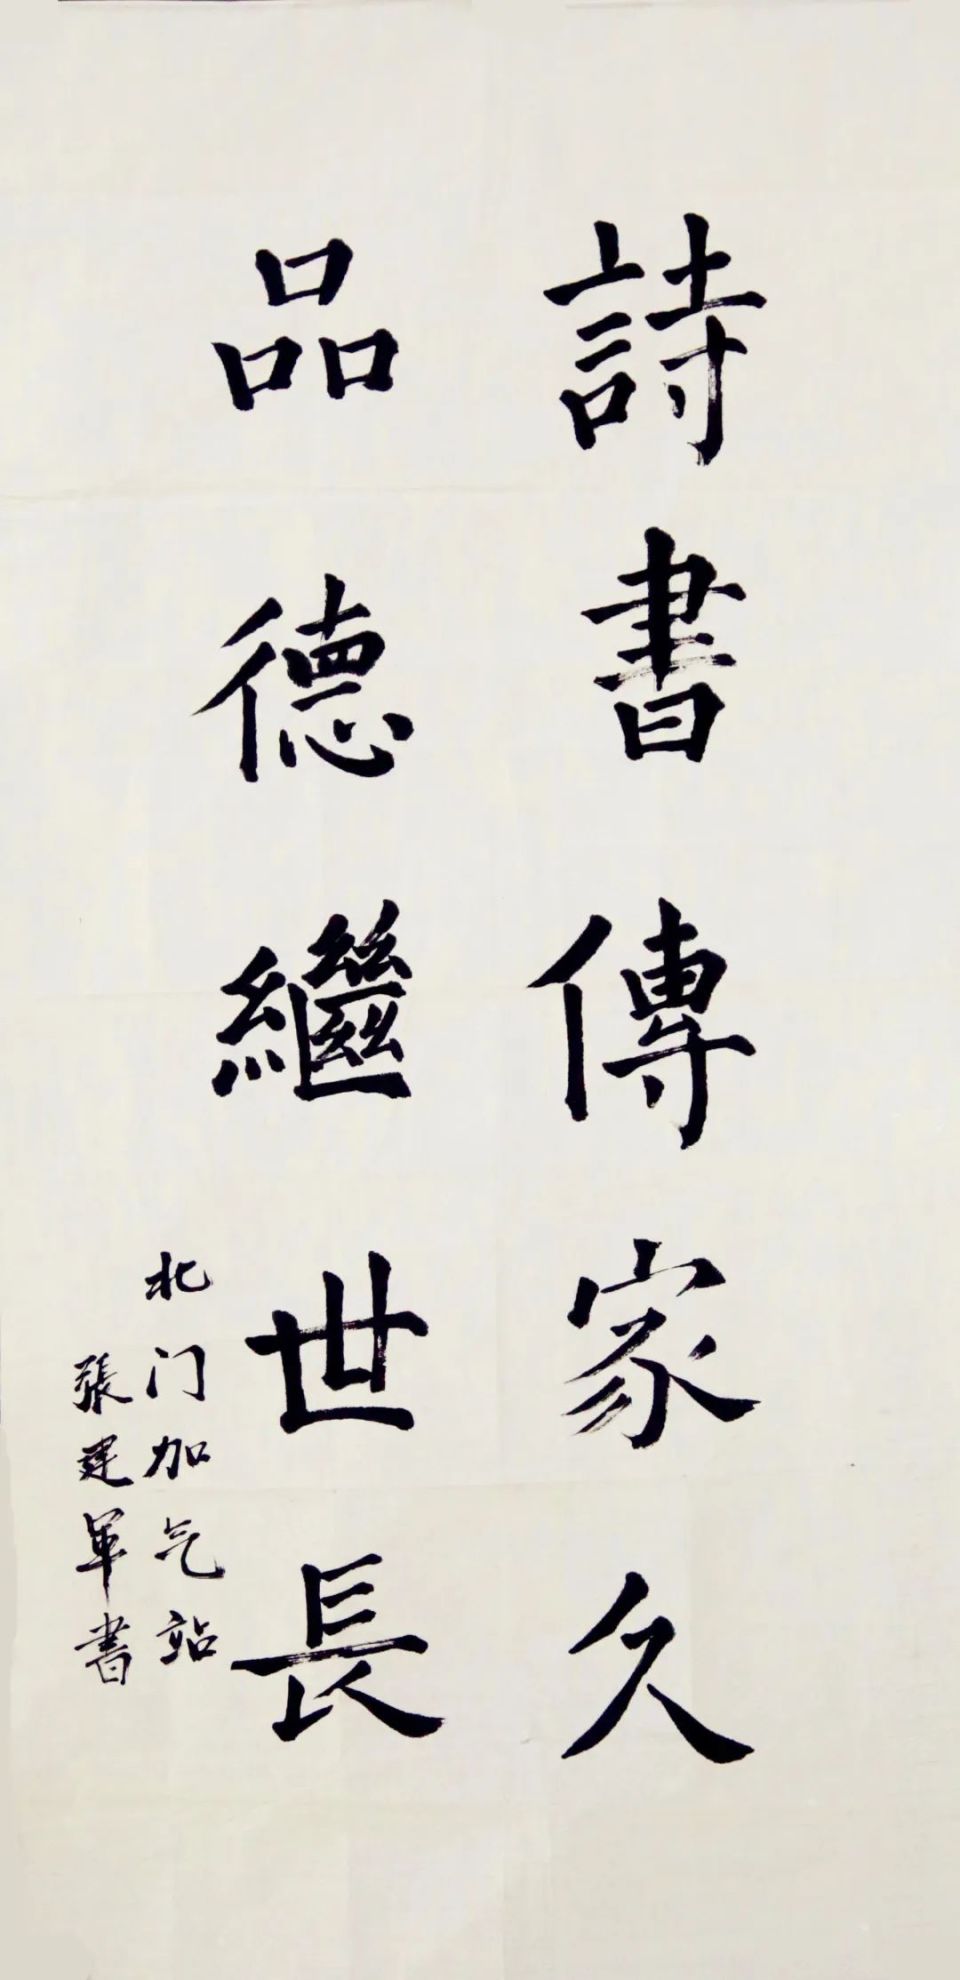 詩書傳家久
品德繼世長
北门加气站
張建軍書